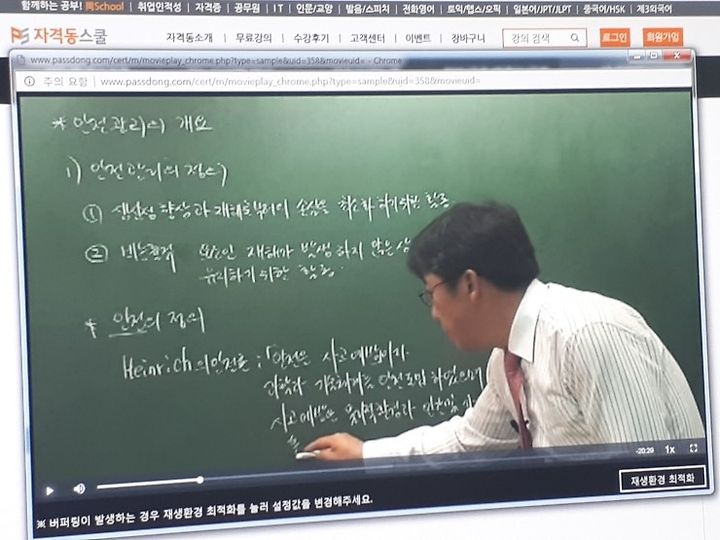 함께하는 공부! 스School | 취업인적성 | 자격증 | 공무원 | I T | 인문/교양 | 발음/스피치 | 전화영어 | 토익/텝스/오픽 | 일본어/JPT/JLPT | 중국어/HSK | 제3외국어
자격동스쿨 자격동소개 | 무료강의 | 수강후기 | 고객센터 | 이벤트 | 장바구니 강의 검색 로그인 회원가입
www.passdong.com/cert/m/movieplay_chrome.php?type=sample&uid=358&movieuid= - Chrome
주의 요함 | www.passdong.com/cert/m/movieplay_chrome.php?type=sample&uid=358&movieuid=
* 안전관리의 개요
1) 안전관리의 정의
① 생산성 향상과 재해로부터의 손실을 최소화 하기위한 활동
② 비능률적 요소인 재해가 발생하지 않은 상
유지하기 위한 활동.
* 안전의 정의
Heinrich의 안전론 ; 「안전은 사고예방이자
사고예방은 물리적환경과 인간및
를
-20:29 1x
재생환경 최적화
※ 버퍼링이 발생하는 경우 재생환경 최적화를 눌러 설정값을 변경해주세요.